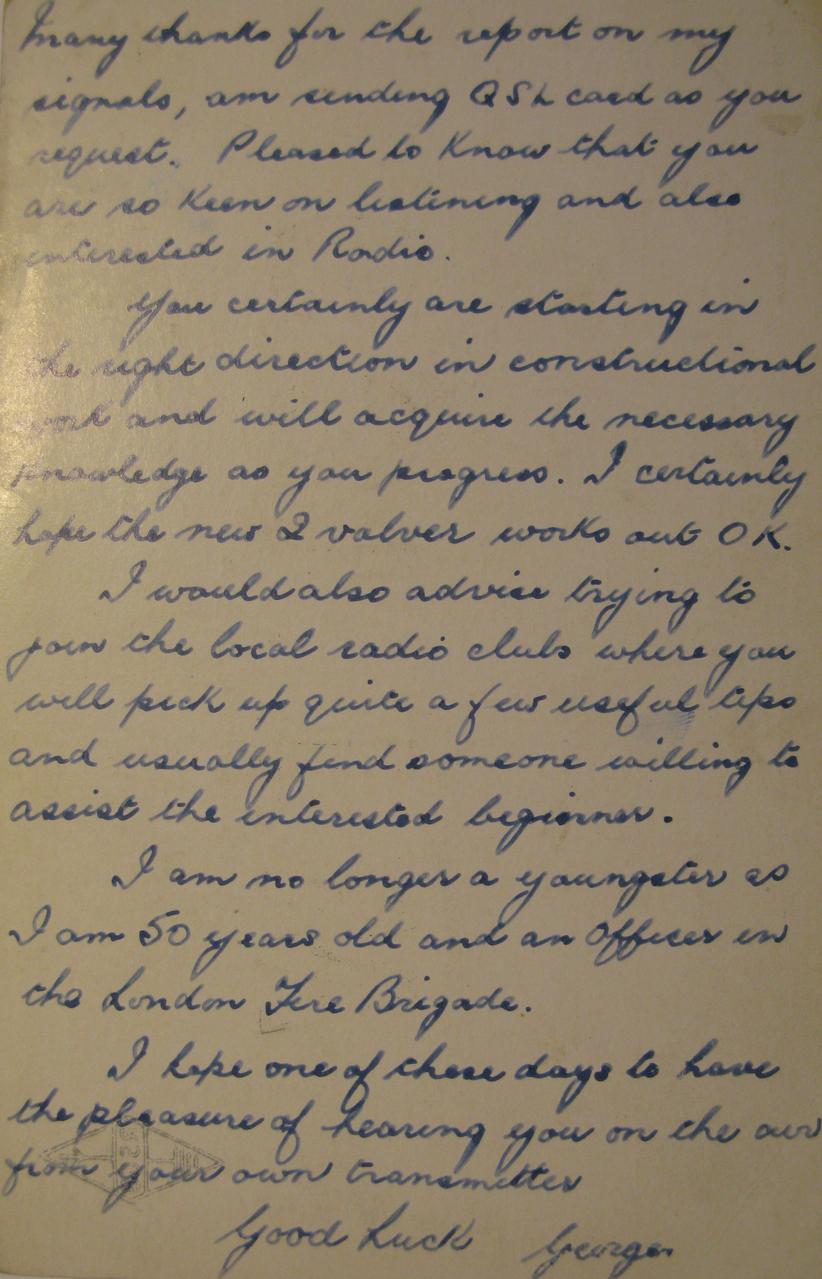 Many thanks for the report on my
signals, am sending QSL card as you
request. Pleased to Know that you
are so Keen on listining and also
interested in Radio.
You certainly are starting in
the right direction in constructional
work and will acquire the necessary
knowledge as you progress. I certainly
hope the new 2 valver works out OK.
I would also advise trying to
join the local radio clubs where you
will pick up quite a few useful tips
and usually find someone willing to
assist the interested beginner.
I am no longer a youngster as
I am 50 years old and an Officer in
the London Fire Brigade.
I hope one of these days to have
the pleasure of hearing you on the air
from your own transmitter
Good Luck George.